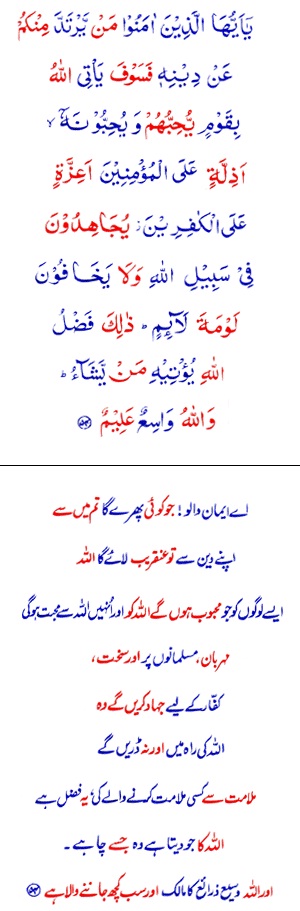 يٰۤاَيُّهَا الَّذِيْنَ اٰمَنُوْا مَنْ يَّرْتَدَّ مِنْكُمْ
عَنْ دِيْنِهٖ فَسَوْفَ يَاْتِى اللّٰهُ
بِقَوْمٍ يُّحِبُّهُمْ وَ يُحِبُّوْنَهٗۤ ۙ
اَذِلَّةٍ عَلَى الْمُؤْمِنِيْنَ اَعِزَّةٍ
عَلَى الْكٰفِرِيْنَ ؗ يُجَاهِدُوْنَ
فِىْ سَبِيْلِ اللّٰهِ وَلَا يَخَافُوْنَ
لَوْمَةَ لَآئِمٍ ؕ ذٰلِكَ فَضْلُ
اللّٰهِ يُؤْتِيْهِ مَنْ يَّشَآءُ ؕ
وَاللّٰهُ وَاسِعٌ عَلِيْمٌ ﴿۵۴﴾
اے ایمان والو ! جو کوئی پھرے گا تم میں سے
اپنے دین سے تو عنقریب لائے گا اللہ
ایسے لوگوں کو جو محبوب ہوں گے اللہ کو اور اُنہیں اللہ سے محبت ہوگی
مہربان ، مسلمانوں پر اور سخت ،
کفّار کے لیے جہاد کریں گے وہ
اللہ کی راہ میں اور نہ ڈریں گے
ملامت سے کسی ملامت کرنے والے کی ، یہ فضل ہے
اللہ کا جو دیتا ہے وہ جسے چاہے ۔
اور اللہ وسیع ذرائع کا مالک اور سب کچھ جاننے والا ہے ﴿۵۴﴾